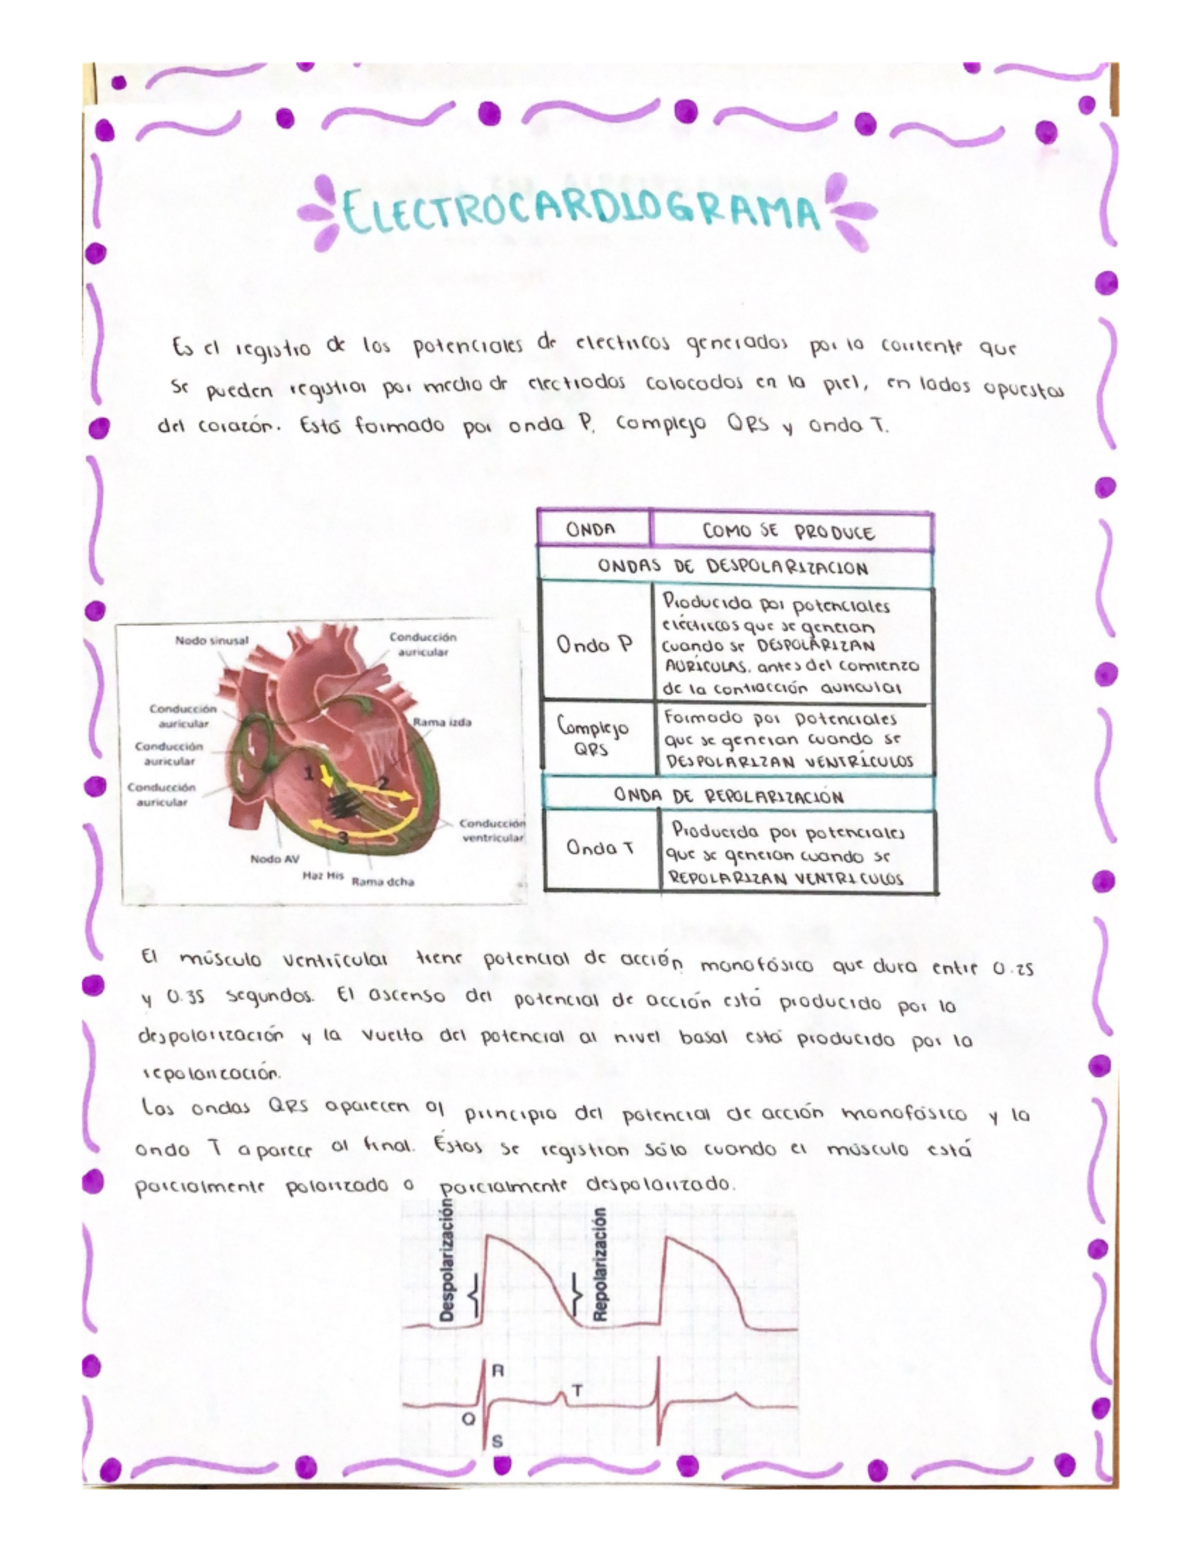 ELECTROCARDIOGRAMA
Es el registro de los potenciales de electricos generados por la corriente que
se pueden registrar por medio de electrodos colocados en la piel, en lados opuestos
del corazón. Está formado por onda P, complejo QRS y onda T.
ONDA
COMO SE PRODUCE
ONDAS DE DESPOLARIZACION
Onda P
Producida por potenciales
eléctricos que se generan
cuando se DESPOLARIZAN
AURÍCULAS, antes del comienzo
de la contracción auricular
Complejo
QRS
Formado por potenciales
que se generan cuando se
DESPOLARIZAN VENTRÍCULOS
ONDA DE REPOLARIZACIÓN
Onda T
Producida por potenciales
que se generan cuando se
REPOLARIZAN VENTRICULOS
Nodo sinusal
Conducción
auricular
Conducción
auricular
Rama izda
Conducción
auricular
Conducción
auricular
1
2
3
Conducción
ventricular
Nodo AV
Haz His
Rama dcha
El músculo ventrícular tiene potencial de acción monofásico que dura entre 0.25
y 0.35 segundos. El ascenso del potencial de acción está producido por la
despolarización y la vuelta del potencial al nivel basal está producido por la
repolarización.
Las ondas QRS aparecen al principio del potencial de acción monofásico y la
onda T aparece al final. Éstas se registran sólo cuando el músculo está
parcialmente polarizado o parcialmente despolarizado.
Despolarización
Repolarización
R
T
Q
S